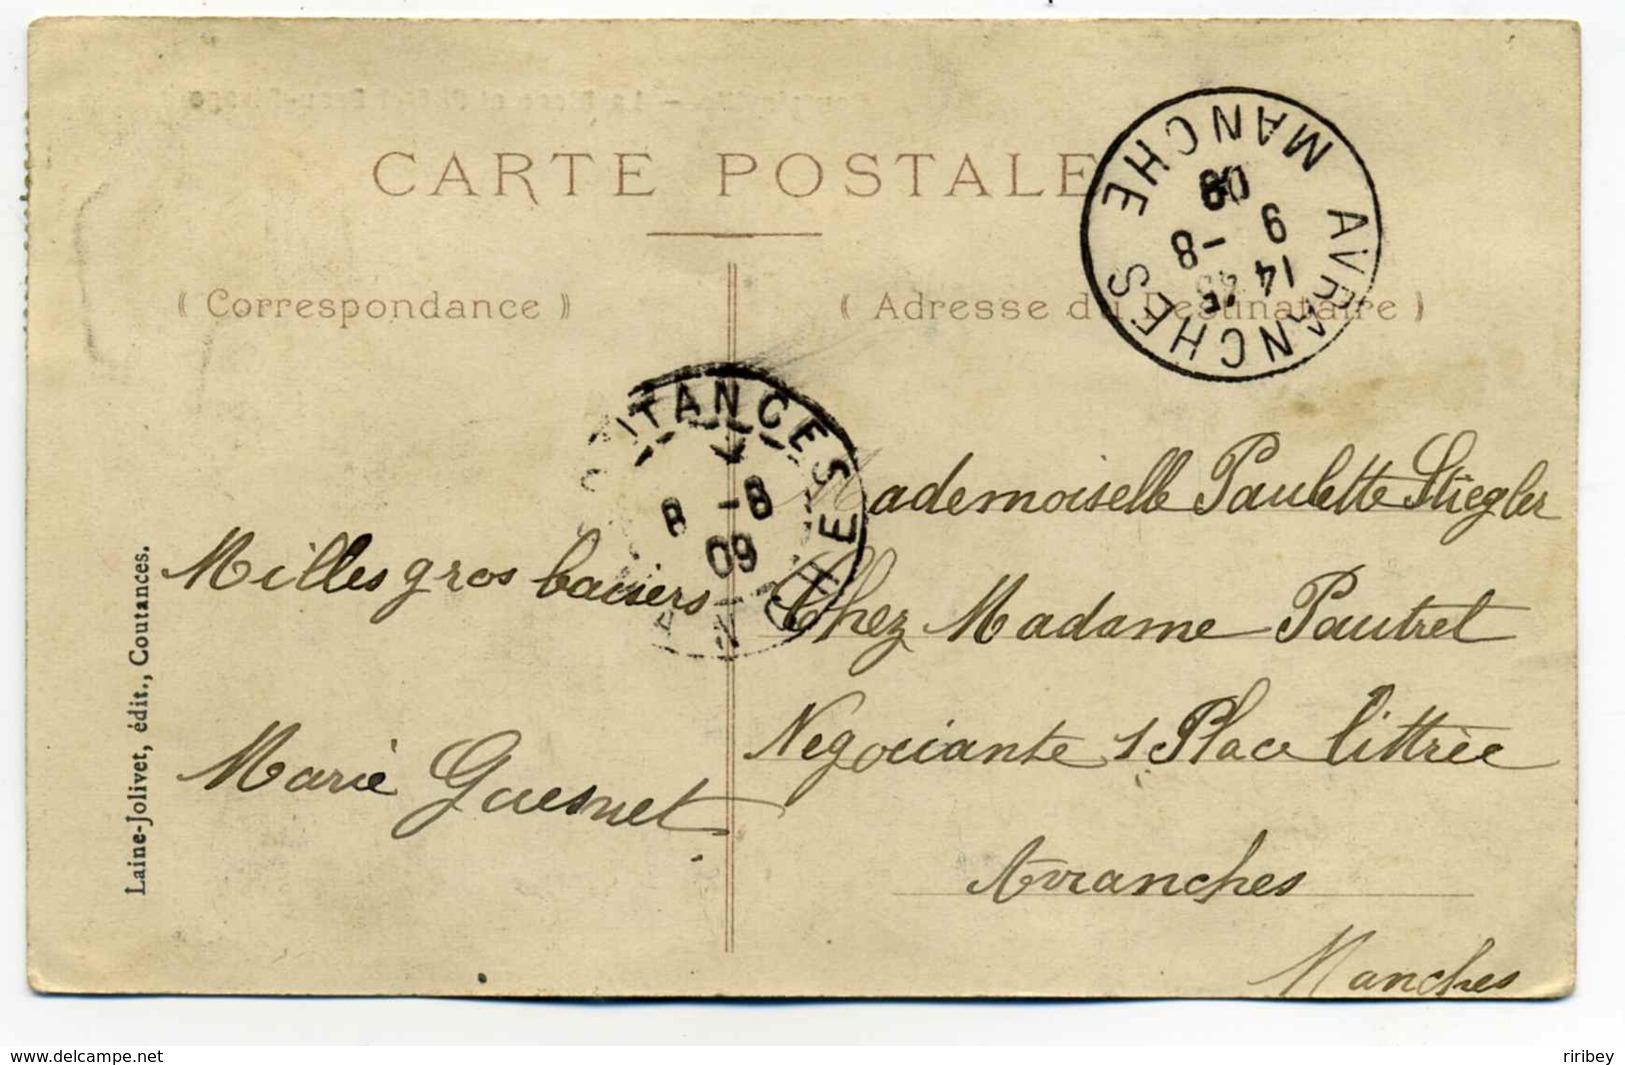 CARTE POSTALE
( Correspondance )
( Adresse du Destinataire )
AVRANCHES MANCHE
14 45
9 -8
09
COUTANCES
8 -8
09
Mademoiselle Paulette Stiegler
Milles gros baisers
Chez Madame Pautret
Negociante 1 Place littrèe
Marie Guesnet
Avranches
Manches
Laine-Jolivet, édit., Coutances.
www.delcampe.net
riribey